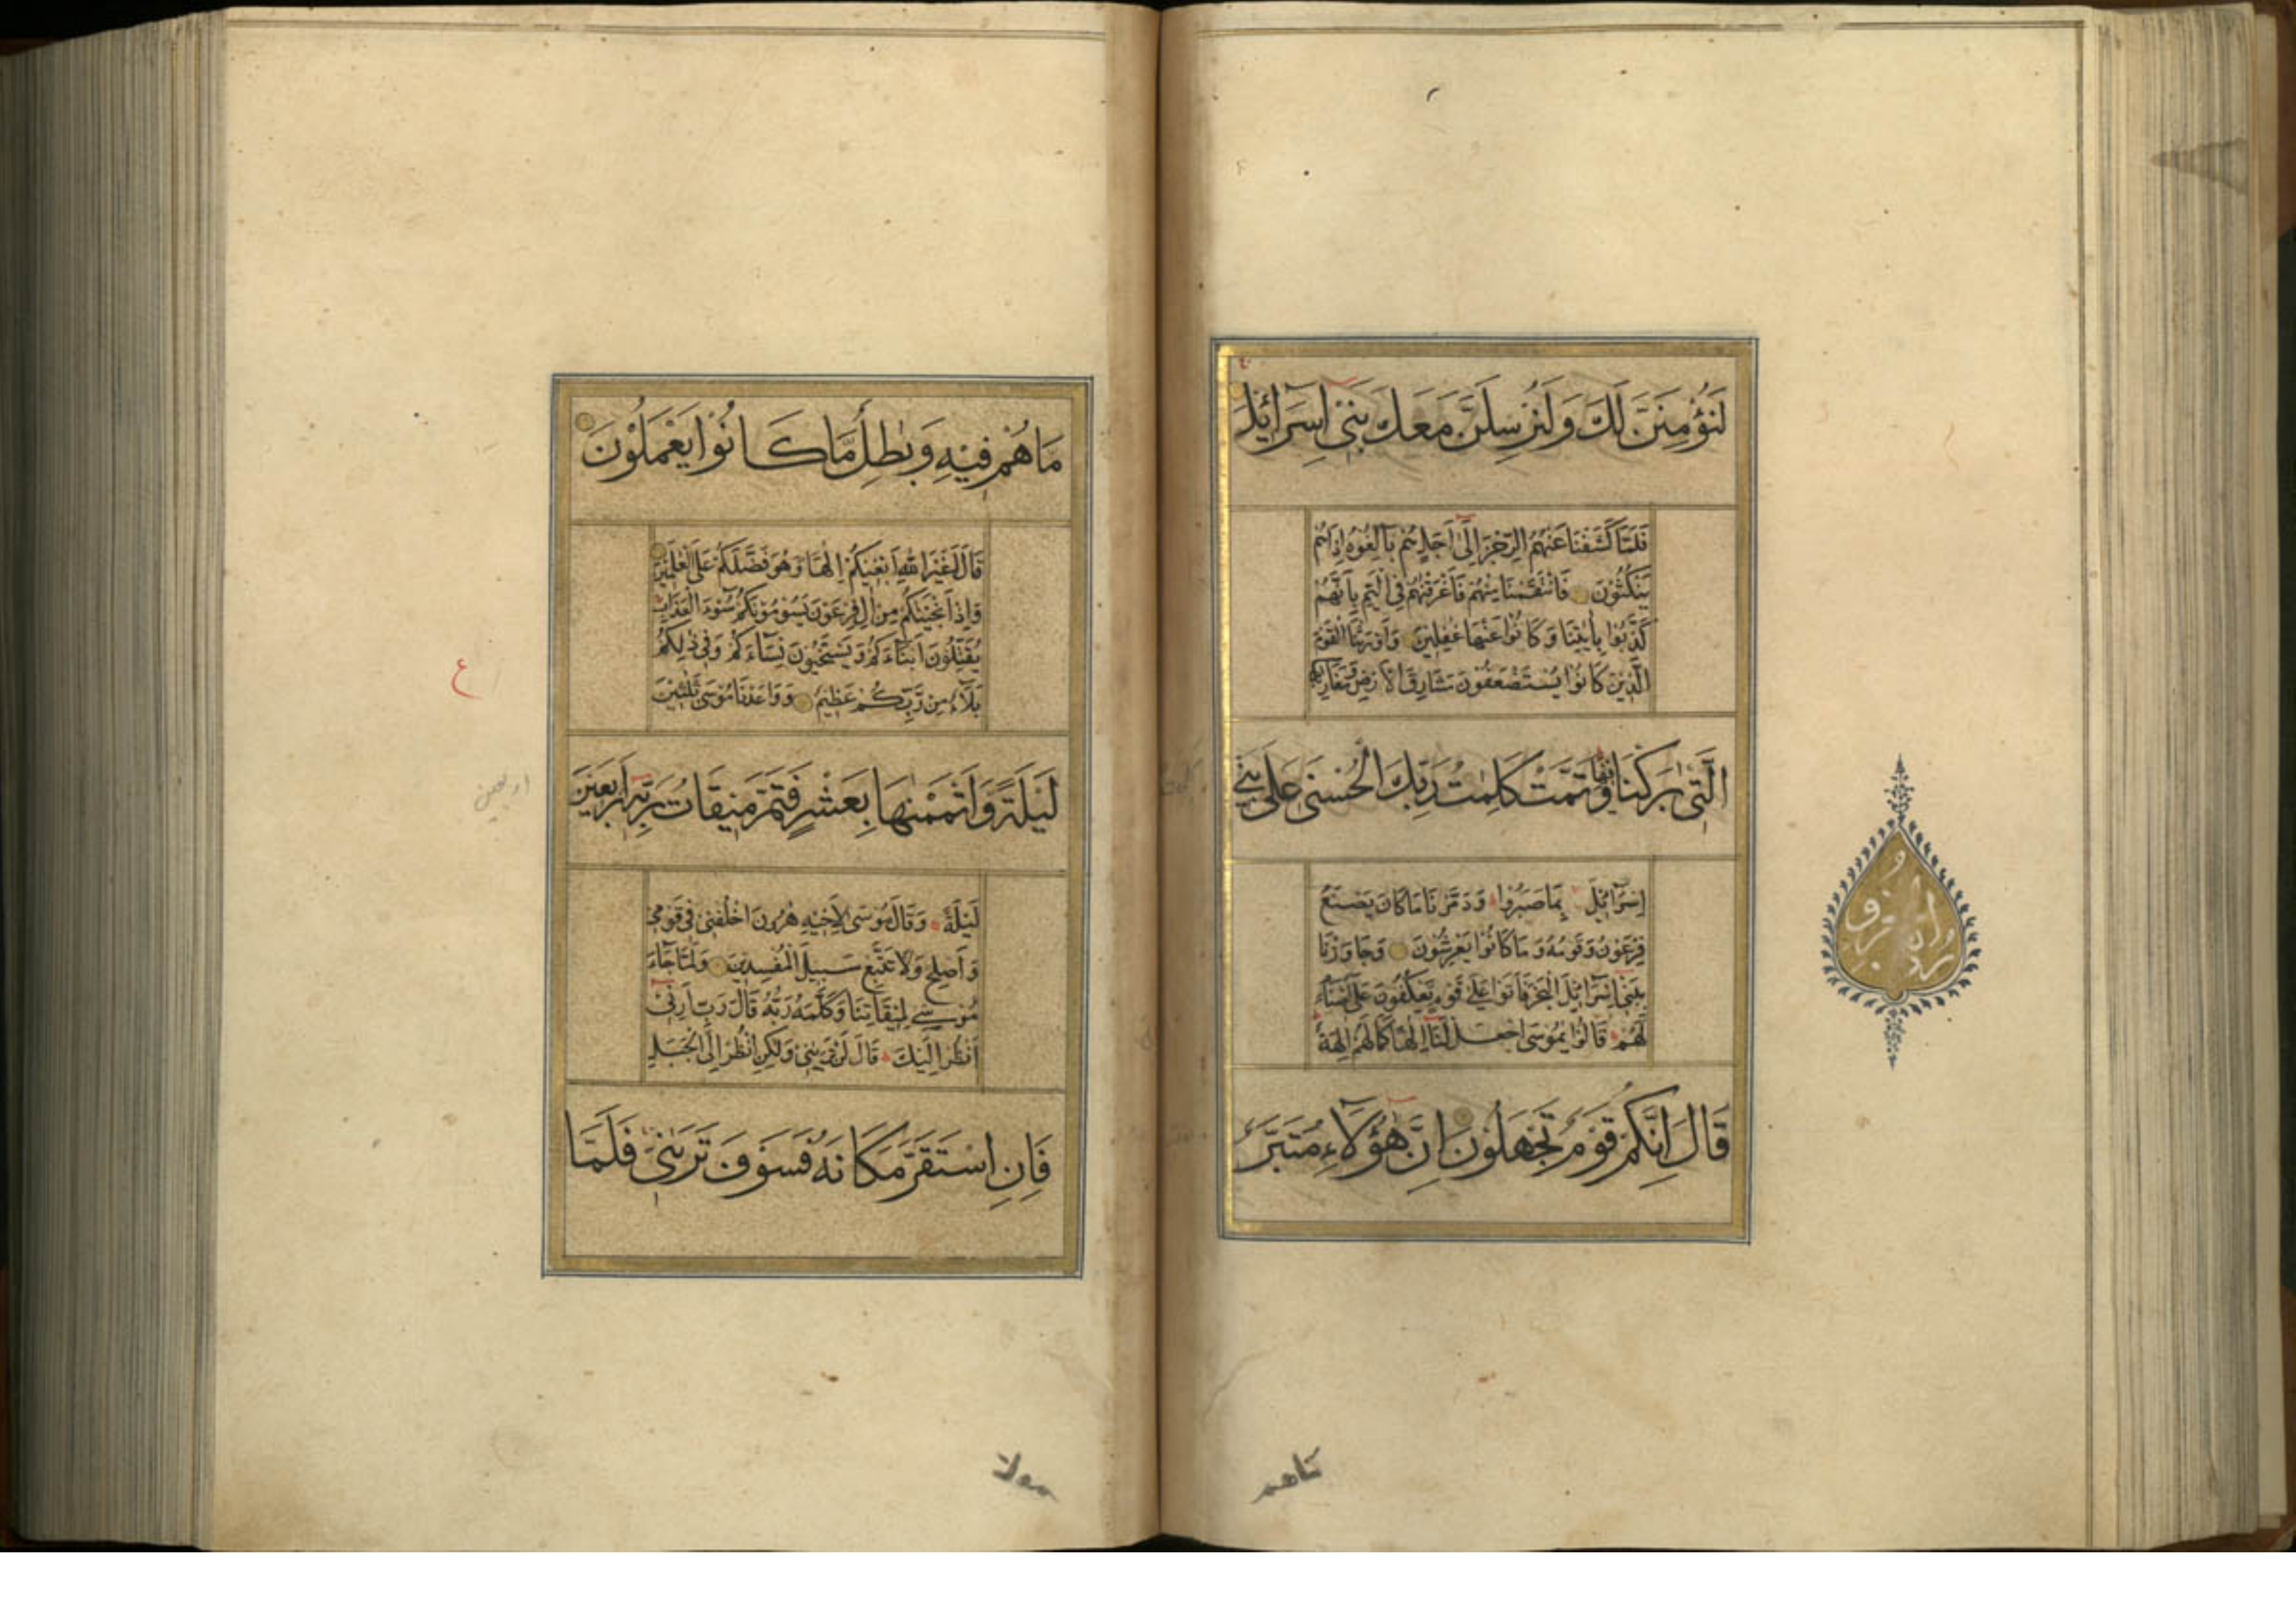 لَنُؤْمِنَنَّ لَكَ وَلَنُرْسِلَنَّ مَعَكَ بَنِي اِسْرَآئِيلَ
فَلَمَّا كَشَفْنَا عَنْهُمُ الرِّجْزَ اِلَى اَجَلٍ هُمْ بَالِغُوهُ اِذَا هُمْ
يَنْكُثُونَ فَانْتَقَمْنَا مِنْهُمْ فَاَغْرَقْنٰهُمْ فِي الْيَمِّ بِاَنَّهُمْ
كَذَّبُوا بِاٰيٰتِنَا وَكَانُوا عَنْهَا غٰفِلِينَ وَاَوْرَثْنَا الْقَوْمَ
الَّذِينَ كَانُوا يُسْتَضْعَفُونَ مَشَارِقَ الْاَرْضِ وَمَغَارِبَهَا
الَّتِي بٰرَكْنَا فِيهَا وَتَمَّتْ كَلِمَتُ رَبِّكَ الْحُسْنٰى عَلٰى بَنِي
اِسْرَآئِيلَ بِمَا صَبَرُوا وَدَمَّرْنَا مَا كَانَ يَصْنَعُ
فِرْعَوْنُ وَقَوْمُهُ وَمَا كَانُوا يَعْرِشُونَ وَجَاوَزْنَا
بِبَنِي اِسْرَآئِيلَ الْبَحْرَ فَاَتَوْا عَلٰى قَوْمٍ يَعْكُفُونَ عَلٰى اَصْنَامٍ
لَهُمْ قَالُوا يٰمُوسَى اجْعَلْ لَنَا اِلٰهًا كَمَا لَهُمْ اٰلِهَةٌ
قَالَ اِنَّكُمْ قَوْمٌ تَجْهَلُونَ اِنَّ هٰٓؤُلَاءِ مُتَبَّرٌ
ماهم
مَا هُمْ فِيهِ وَبٰطِلٌ مَا كَانُوا يَعْمَلُونَ
قَالَ اَغَيْرَ اللهِ اَبْغِيكُمْ اِلٰهًا وَهُوَ فَضَّلَكُمْ عَلَى الْعٰلَمِينَ
وَاِذْ اَنْجَيْنٰكُمْ مِنْ اٰلِ فِرْعَوْنَ يَسُومُونَكُمْ سُوءَ الْعَذَابِ
يُقَتِّلُونَ اَبْنَاءَكُمْ وَيَسْتَحْيُونَ نِسَاءَكُمْ وَفِي ذٰلِكُمْ
بَلَاءٌ مِنْ رَبِّكُمْ عَظِيمٌ وَوَاعَدْنَا مُوسٰى ثَلٰثِينَ
ع
لَيْلَةً وَاَتْمَمْنٰهَا بِعَشْرٍ فَتَمَّ مِيقَاتُ رَبِّهِ اَرْبَعِينَ
اربعين
لَيْلَةً وَقَالَ مُوسٰى لِاَخِيهِ هٰرُونَ اخْلُفْنِي فِي قَوْمِي
وَاَصْلِحْ وَلَا تَتَّبِعْ سَبِيلَ الْمُفْسِدِينَ وَلَمَّا جَاءَ
مُوسٰى لِمِيقَاتِنَا وَكَلَّمَهُ رَبُّهُ قَالَ رَبِّ اَرِنِي
اَنْظُرْ اِلَيْكَ قَالَ لَنْ تَرٰينِي وَلٰكِنِ انْظُرْ اِلَى الْجَبَلِ
فَاِنِ اسْتَقَرَّ مَكَانَهُ فَسَوْفَ تَرٰينِي فَلَمَّا